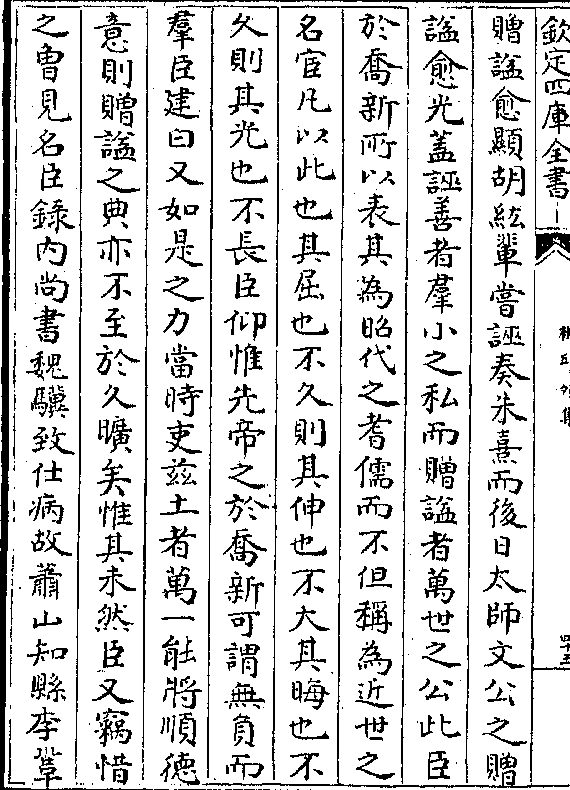 欽定四庫全書
贈諡愈顯胡紘輩嘗誣奏朱熹而後日太師文公之贈
諡愈光蓋誣善者羣小之私而贈諡者萬世之公此臣
於喬新所以表其為昭代之耆儒而不但稱為近世之
名宦凡以此也其屈也不久則其伸也不大其晦也不
久則其光也不長臣仰惟先帝之於喬新可謂無負而
羣臣建白又如是之力當時吏兹土者萬一能將順德
意則贈諡之典亦不至於久曠矣惟其未然臣又竊惜
之曾見名臣錄内尚書魏驥致仕病故蕭山知縣李鞏
四十五